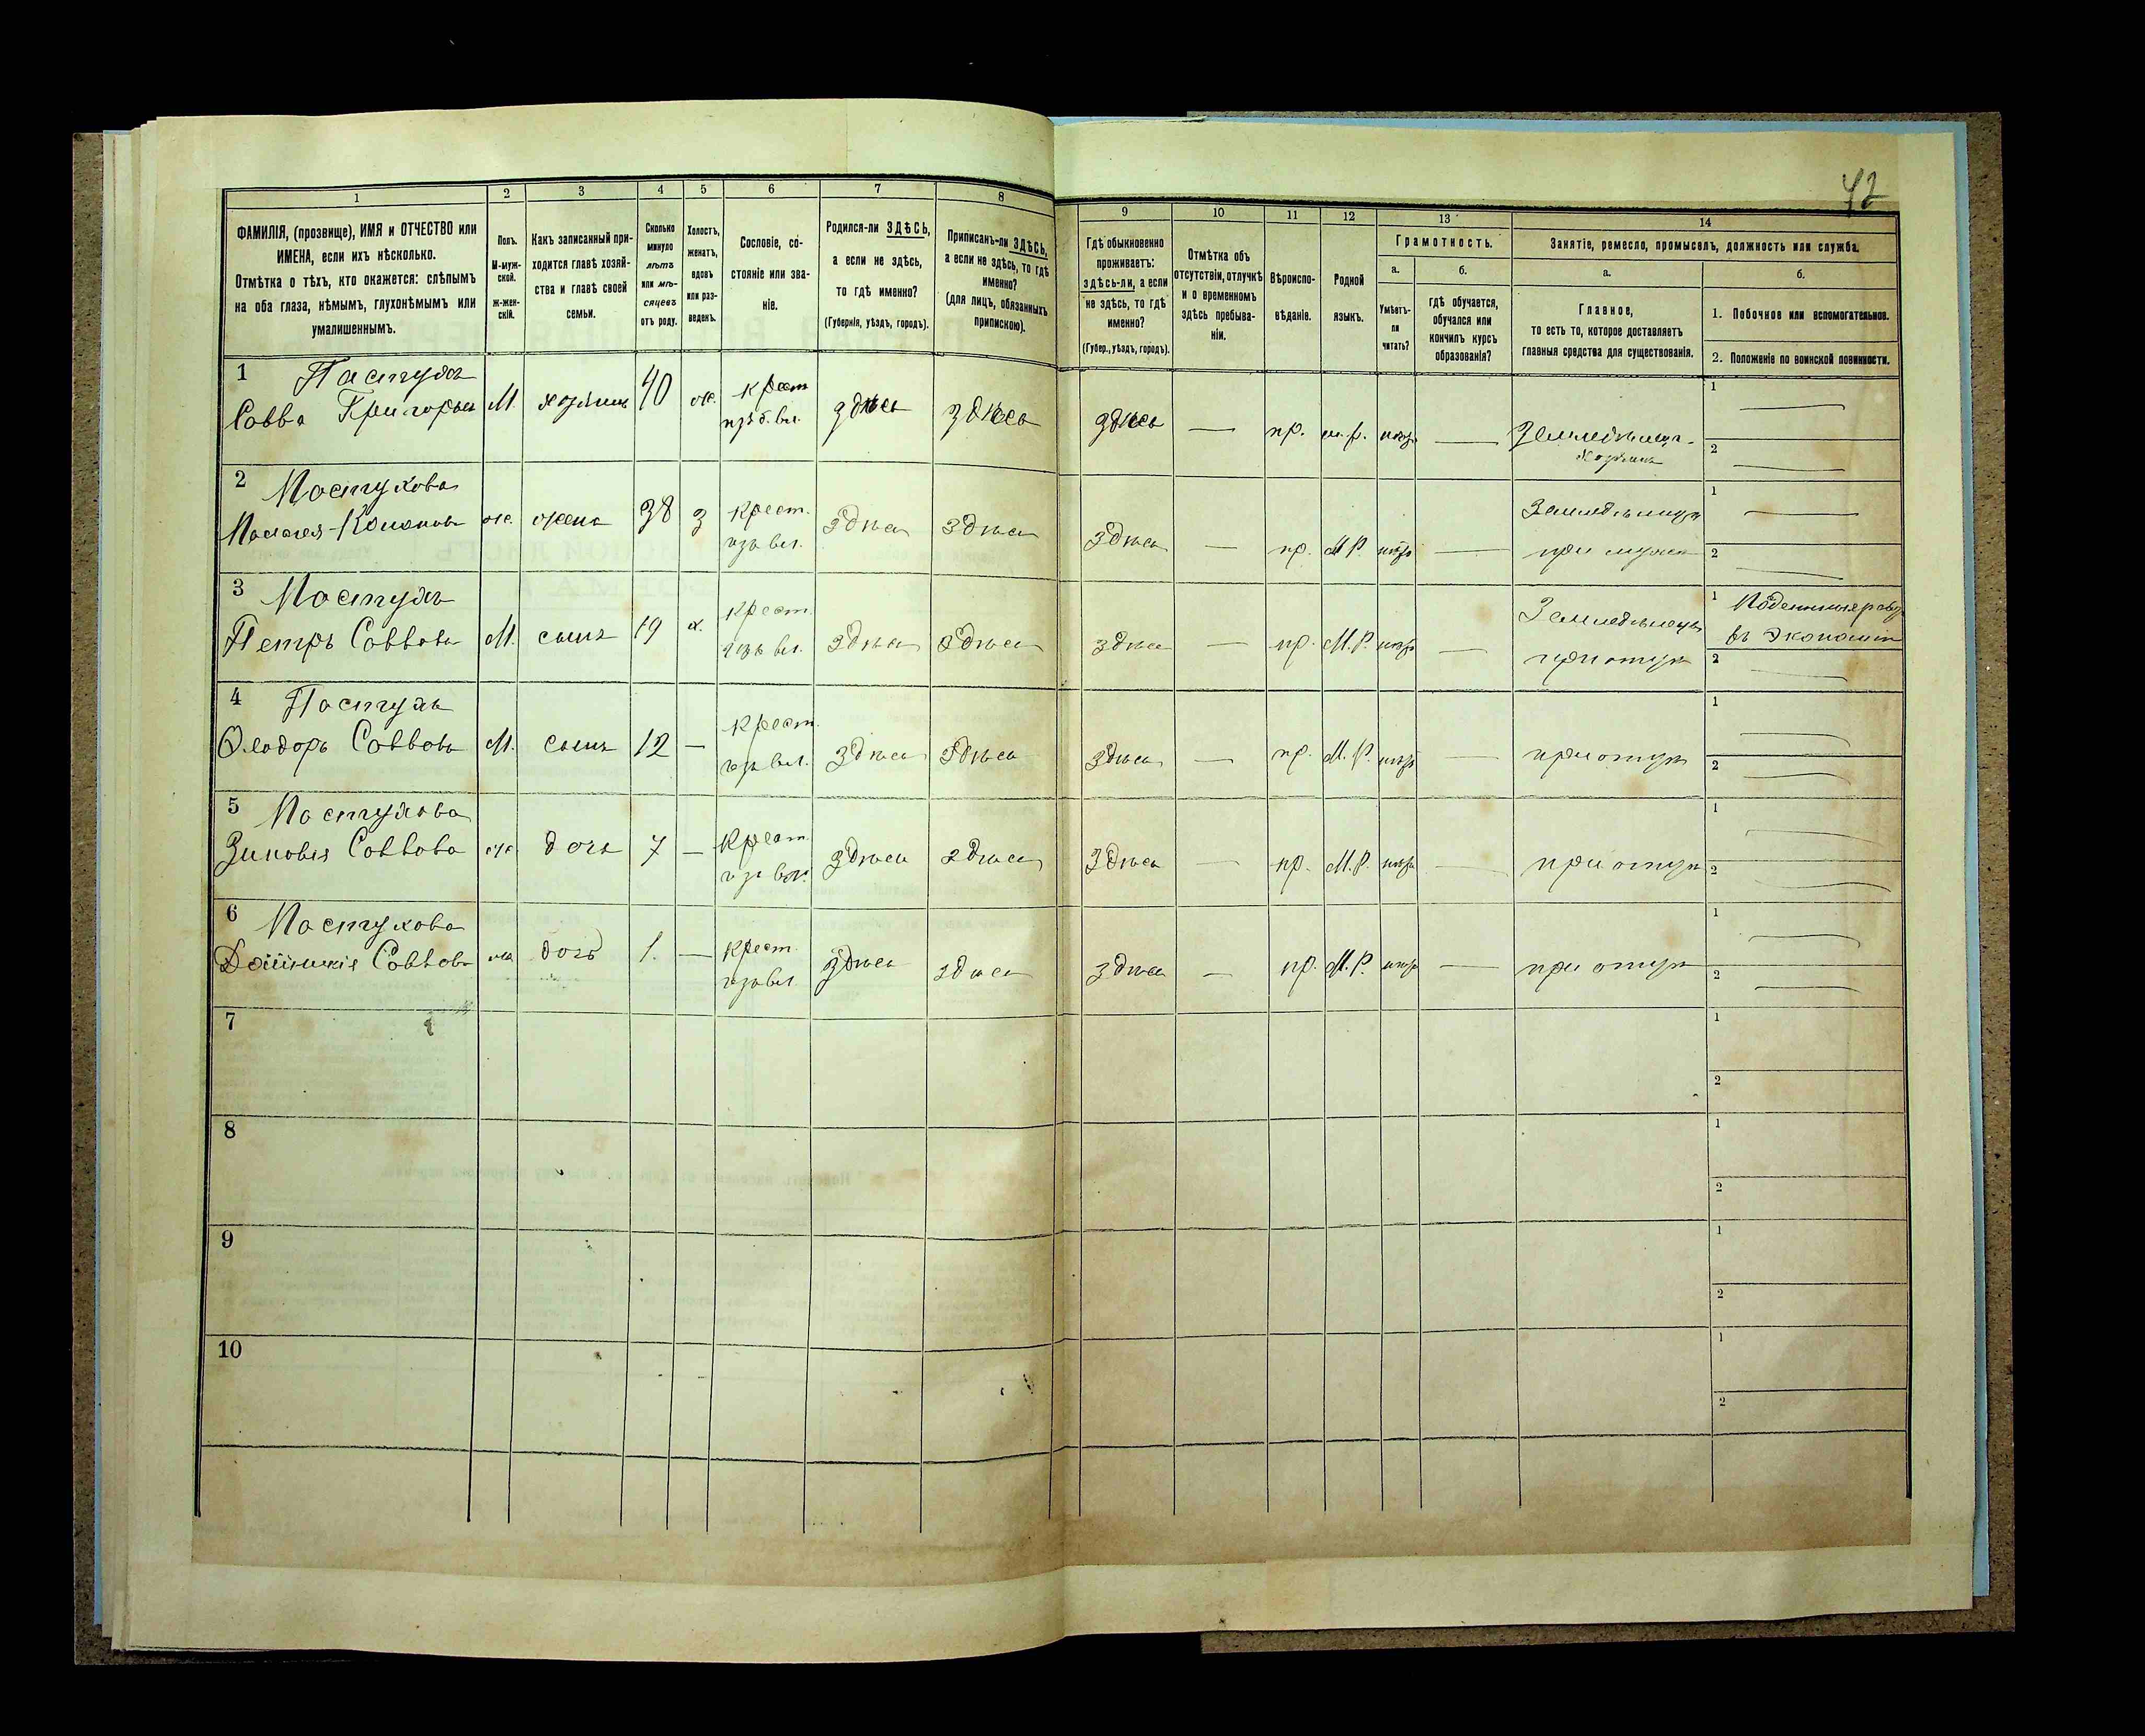 42
1
2
3
4
5
6
7
8
9
10
11
12
13
14
ФАМИЛІЯ, (прозвище), ИМЯ и ОТЧЕСТВО или
ИМЕНА, если ихъ нѣсколько.
Отмѣтка о тѣхъ, кто окажется: слѣпымъ
на оба глаза, нѣмымъ, глухонѣмымъ или
умалишеннымъ.
Полъ.
М-муж-
ской.
ж-жен-
скій.
Какъ записанный при-
ходится главѣ хозяй-
ства и главѣ своей
семьи.
Сколько
минуло
лѣтъ
или мѣ-
сяцевъ
отъ роду.
Холостъ,
женатъ,
вдовъ
или раз-
веденъ.
Сословіе, со-
стояніе или зва-
ніе.
Родился-ли ЗДѢСЬ,
а если не здѣсь,
то гдѣ именно?
(Губернія, уѣздъ, городъ).
Приписанъ-ли ЗДѢСЬ,
а если не здѣсь, то гдѣ
именно?
(для лицъ, обязанныхъ
припискою).
Гдѣ обыкновенно
проживаетъ:
здѣсь-ли, а если
не здѣсь, то гдѣ
именно?
(Губер., уѣздъ, городъ).
Отмѣтка объ
отсутствіи, отлучкѣ
и о временномъ
здѣсь пребыва-
ніи.
Вѣроиспо-
вѣданіе.
Родной
языкъ.
Грамотность.
а.
Умѣетъ-
ли
читать?
б.
гдѣ обучается,
обучался или
кончилъ курсъ
образованія?
Занятіе, ремесло, промыселъ, должность или служба.
а.
Главное,
то есть то, которое доставляетъ
главныя средства для существованія.
б.
1. Побочное или вспомогательное.
2. Положеніе по воинской повинности.
1 Пастухъ
Савва Григорьев М. хозяинъ 40 ж. крест. изъ б. вл. здѣсь здѣсь здѣсь — пр. м.р. — Земледѣлецъ-хозяинъ
1 —
2 —
2 Пастухова
ж. жена 38 З крест. изъ вл. здѣсь здѣсь здѣсь — пр. М.Р. — при мужѣ
1 —
2 —
3 Пастухъ
Петръ Саввовъ М. сынъ 19 х. крест. изъ вл. здѣсь здѣсь здѣсь — пр. М.Р. — Земледѣлецъ при отцѣ
1 въ экономіи
2 —
4 Пастухъ
Ѳеодоръ Саввовъ М. сынъ 12 — крест. изъ вл. здѣсь здѣсь здѣсь — пр. М.Р. — при отцѣ
1 —
2 —
5 Пастухова
Зиновія Саввова ж. дочь 7 — крест. изъ вл. здѣсь здѣсь здѣсь — пр. М.Р. — при отцѣ
1 —
2 —
6 Пастухова
Саввова ж. дочь 1. — крест. изъ вл. здѣсь здѣсь здѣсь — пр. М.Р. — при отцѣ
1 —
2 —
7
1
2
8
1
2
9
1
2
10
1
2